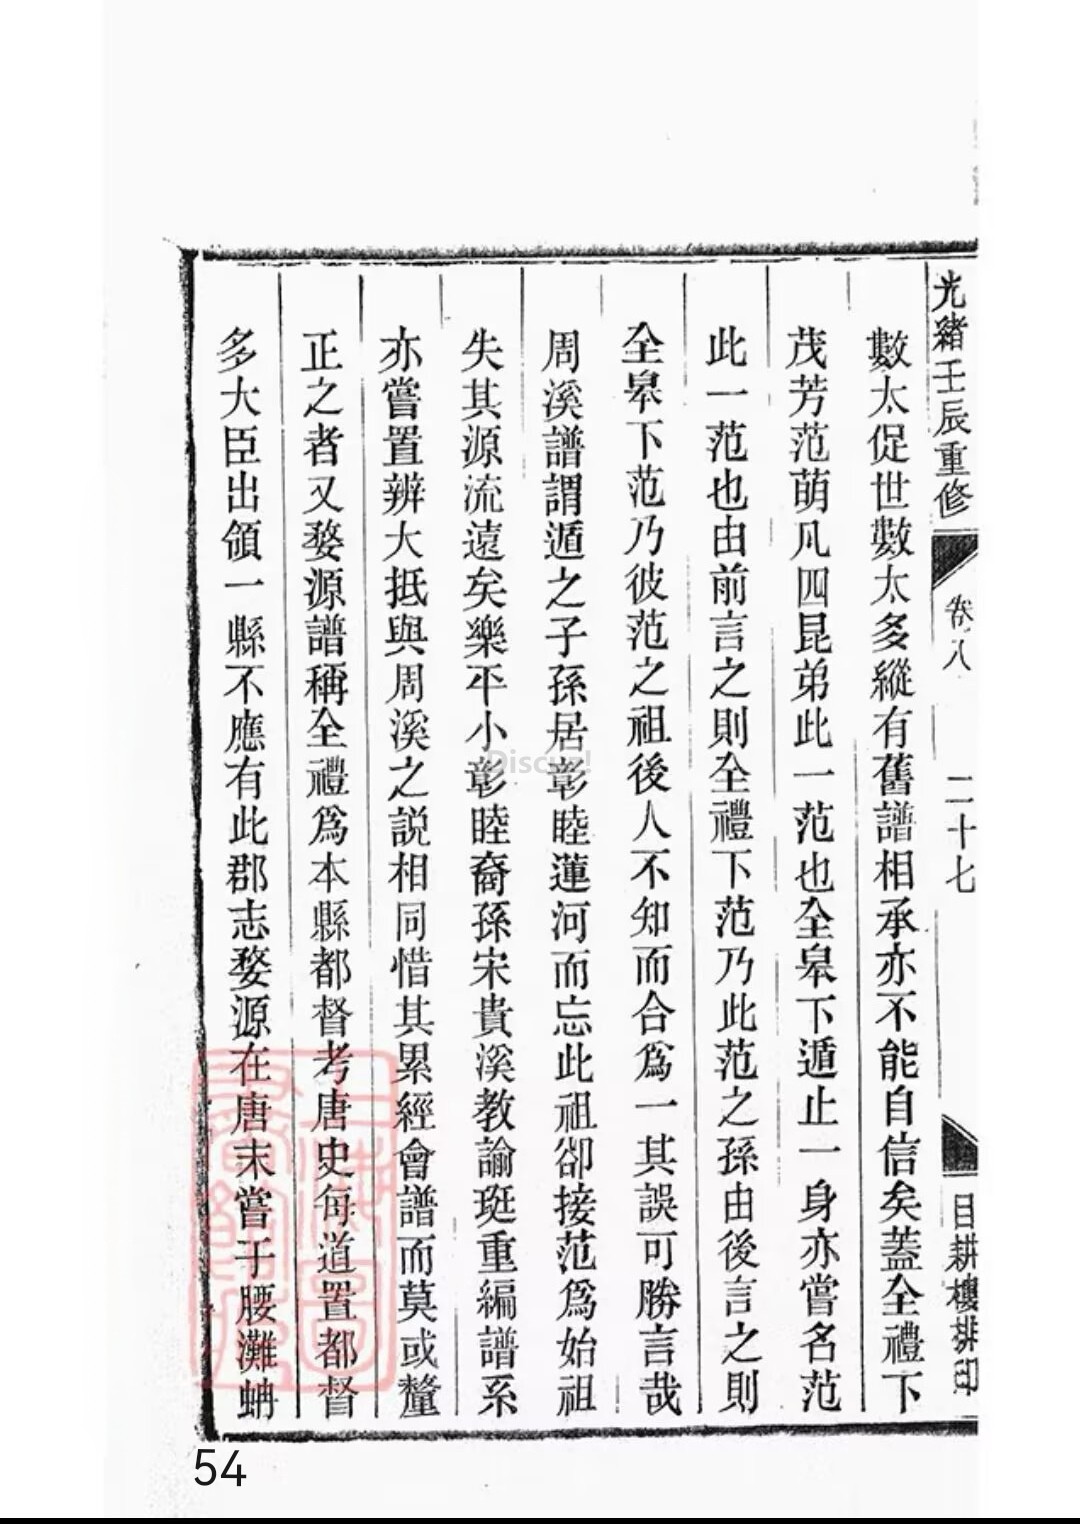 光緒壬辰重修
卷八
二十七
目耕樓排印
數太促世數太多縱有舊譜相承亦不能自信矣蓋全禮下
茂芳范萌凡四昆弟此一范也全皋下遁止一身亦嘗名范
此一范也由前言之則全禮下范乃此范之孫由後言之則
全皋下范乃彼范之祖後人不知而合為一其誤可勝言哉
周溪譜謂遁之子孫居彰睦蓮河而忘此祖卻接范為始祖
失其源流遠矣樂平小彰睦裔孫宋貴溪教諭珽重編譜系
亦嘗置辨大抵與周溪之説相同惜其累經會譜而莫或釐
正之者又婺源譜稱全禮為本縣都督考唐史每道置都督
多大臣出領一縣不應有此郡志婺源在唐末嘗于腰灘蚺
Discuz!
上海圖書館藏
54